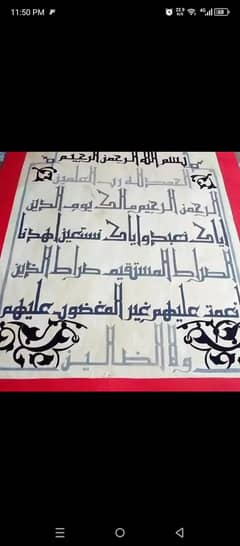 11:50 PM
بسم الله الرحمن الرحيم
الحمد لله رب العلمين
الرحمن الرحيم مالك يوم الدين
إياك نعبد وإياك نستعين اهدنا
الصراط المستقيم صراط الذين
نعمت عليهم غير المغضوب عليهم
ولا الضالين